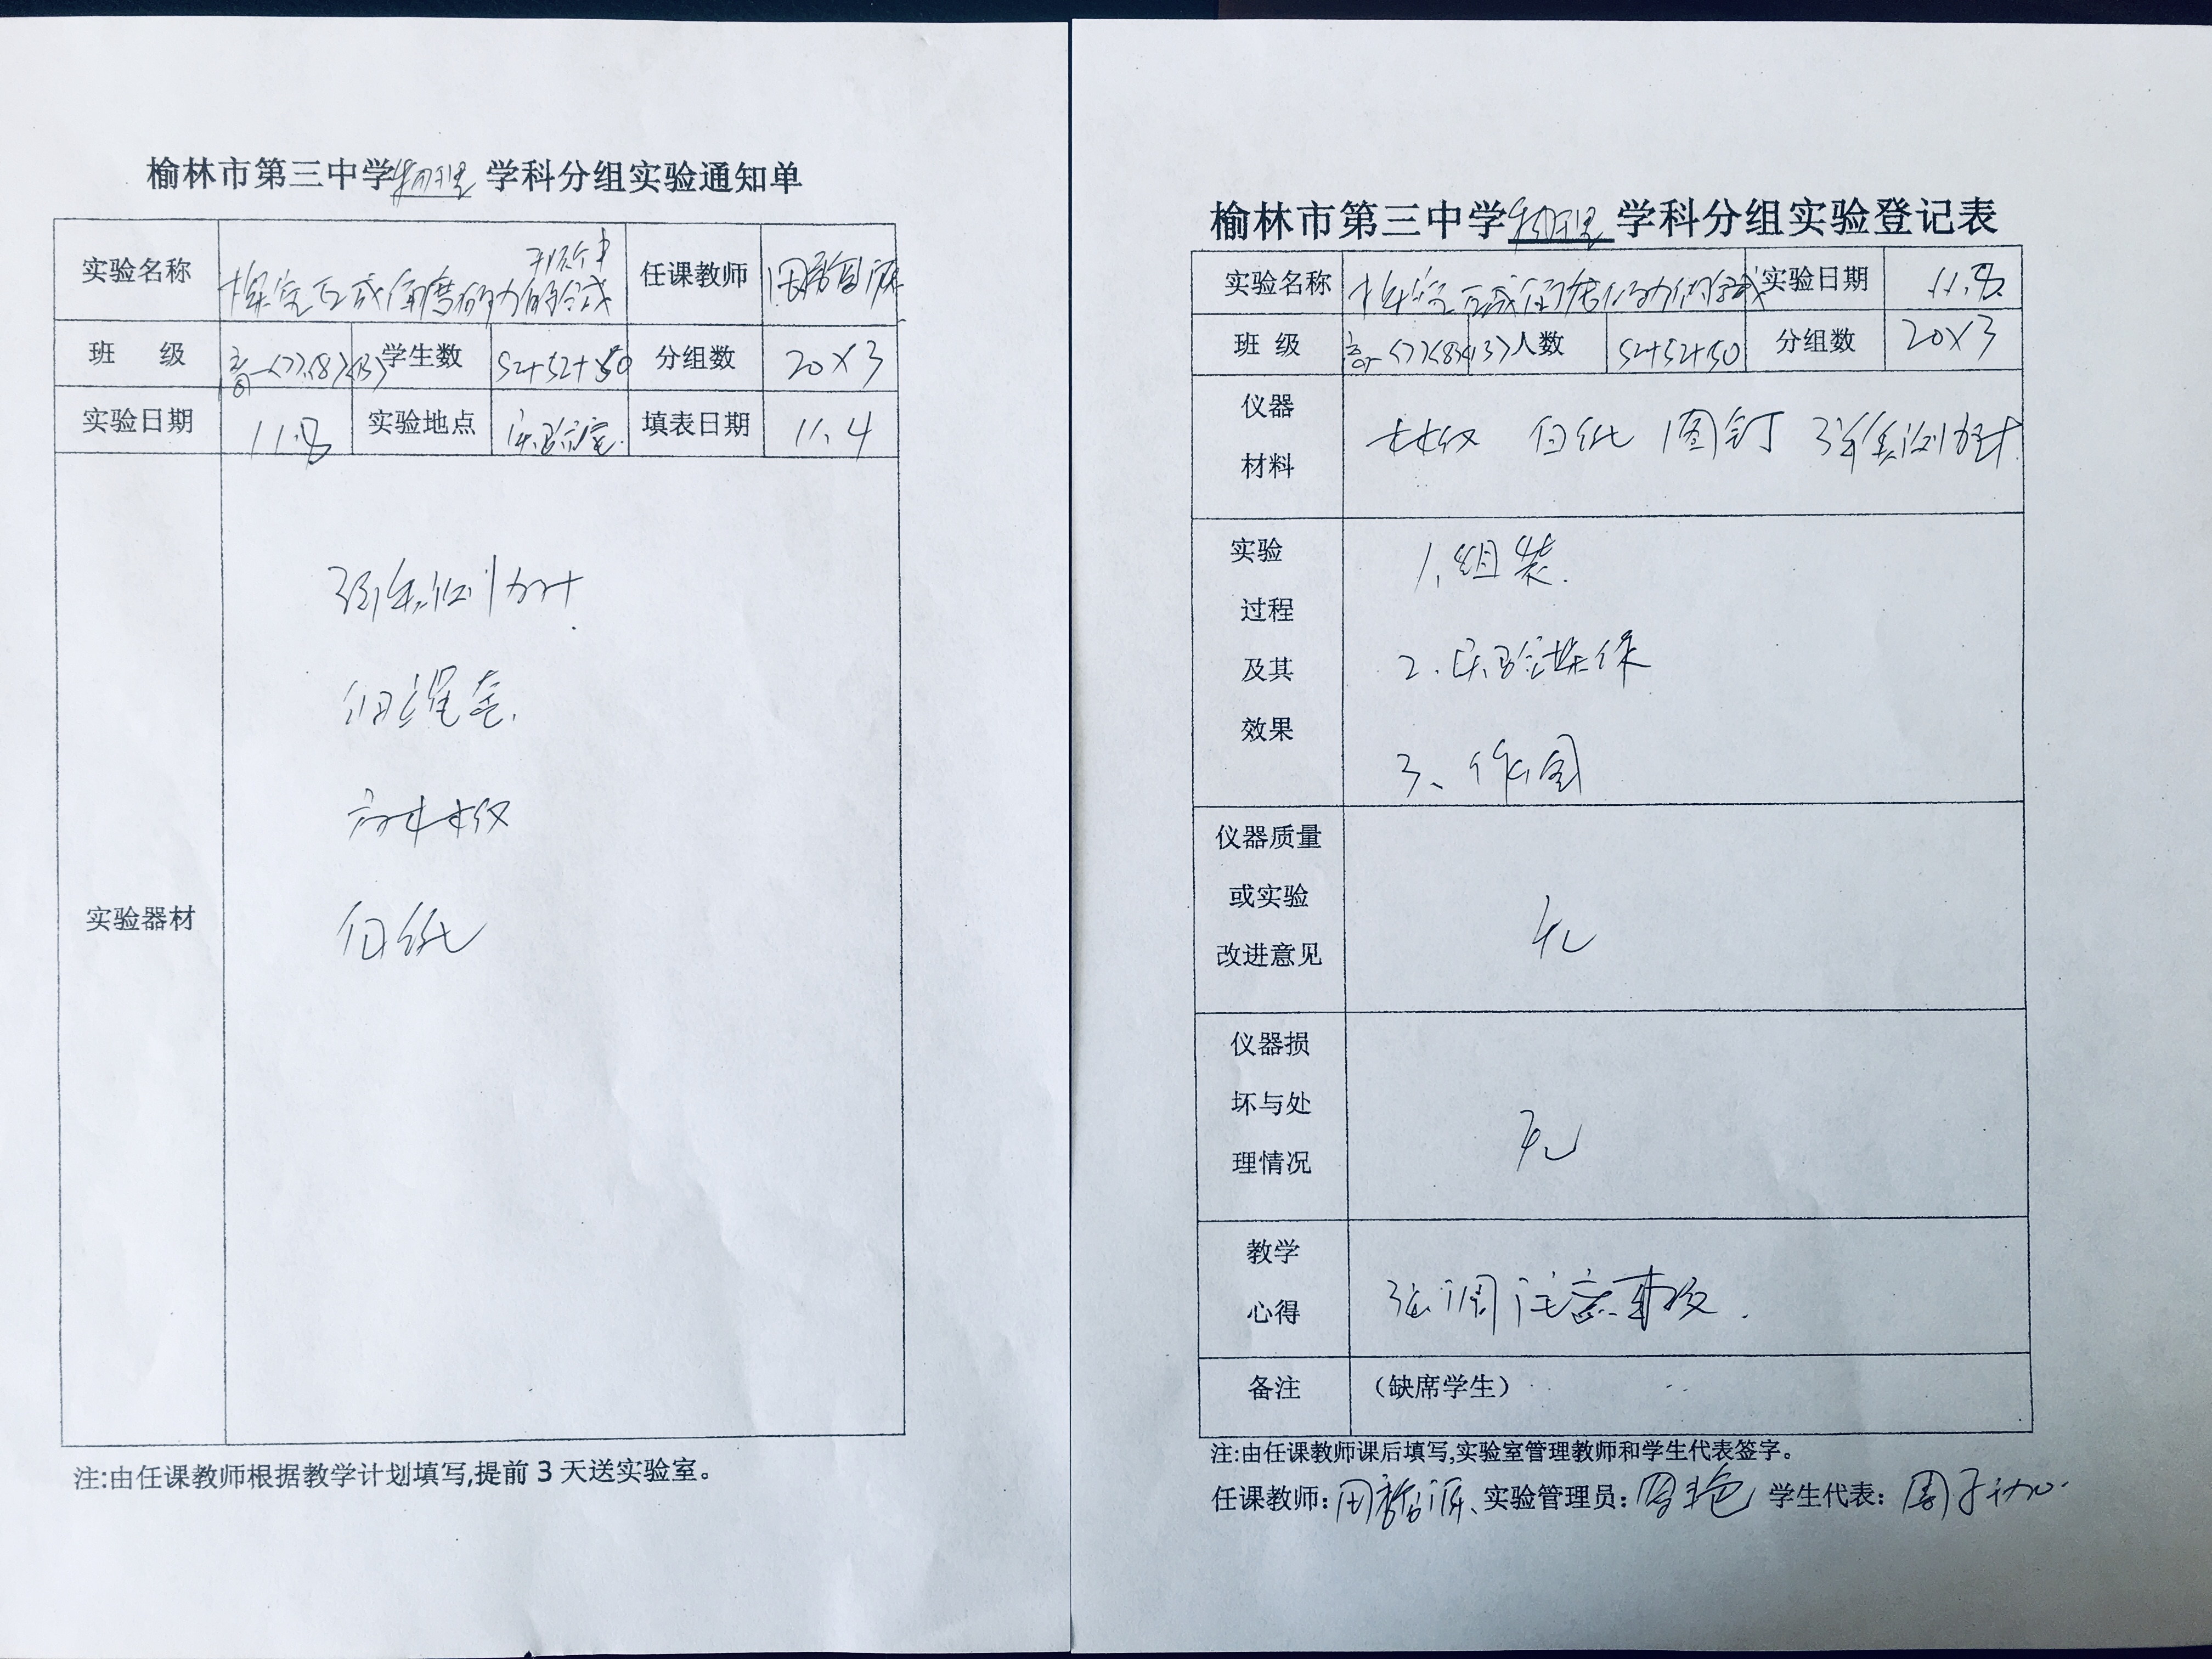 榆林市第三中学物理 学科分组实验通知单
实验名称 探究互成角度的力的合成 任课教师
班 级 高一(7)(8)(13) 学生数 52+52+50 分组数 20×3
实验日期 11.8 实验地点 实验室. 填表日期 11.4
实验器材
弹簧测力计
细绳套.
方木板
白纸
注:由任课教师根据教学计划填写,提前 3 天送实验室。
榆林市第三中学物理学科分组实验登记表
实验名称 探究互成角度的力的合成 实验日期 11.8
班 级 高一(7)(8)(13) 人数 52+52+50 分组数 20×3
仪器
材料
木板 白纸 图钉 弹簧测力计
实验
过程
及其
效果
1、组装.
2.实验操作
3、作图
仪器质量
或实验
改进意见
无
仪器损
坏与处
理情况
无
教学
心得
强调注意事项.
备注 （缺席学生）
注:由任课教师课后填写,实验室管理教师和学生代表签字。
任课教师: 实验管理员: 学生代表: